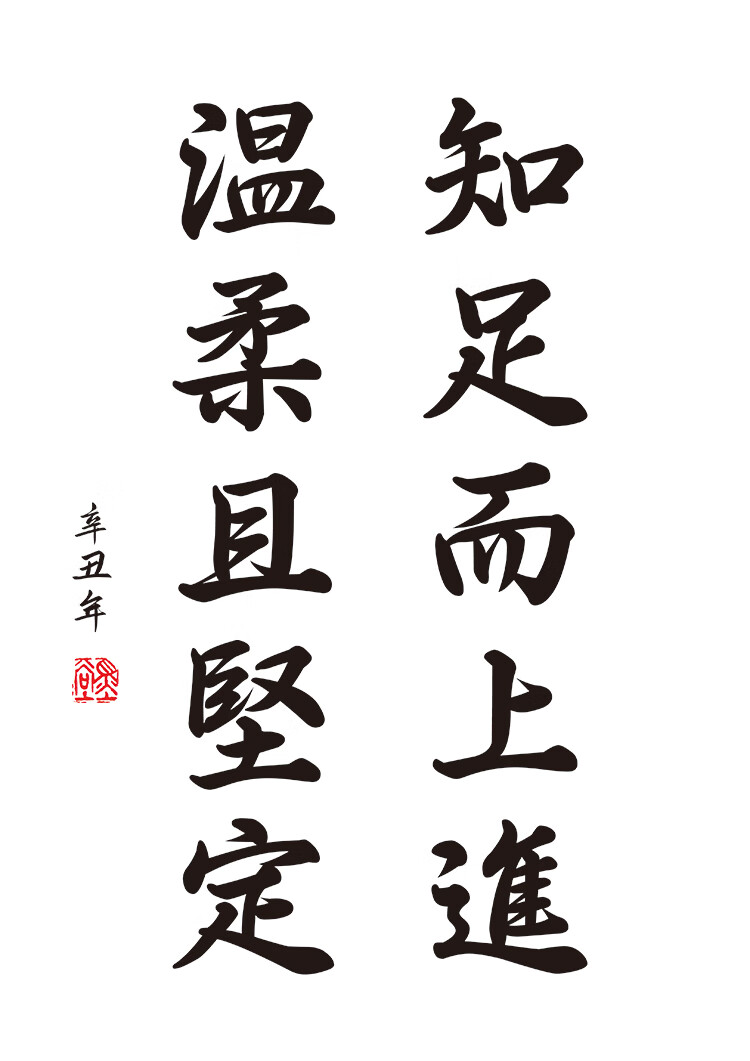 知足而上進
温柔且堅定
辛丑年